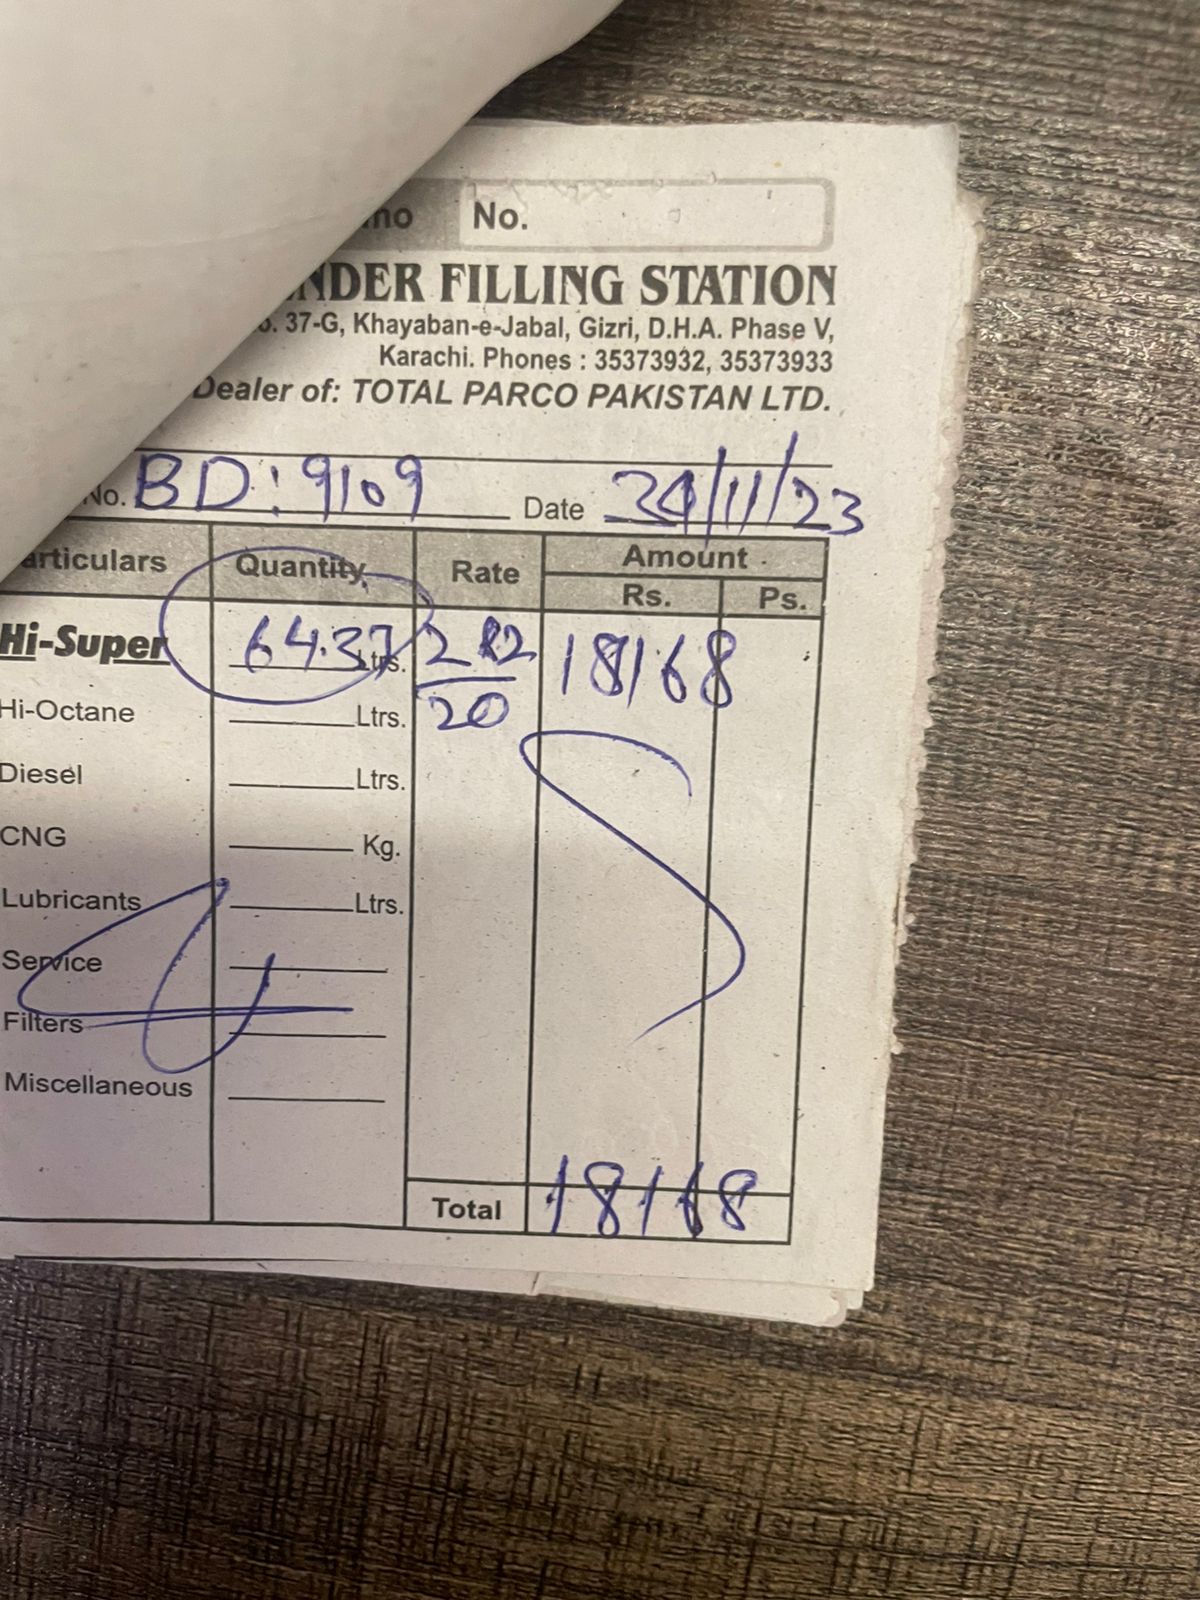 No.
FILLING STATION
37-G, Khayaban-e-Jabal, Gizri, D.H.A. Phase V,
Karachi. Phones : 35373932, 35373933
Dealer of: TOTAL PARCO PAKISTAN LTD.
No. BD: 9109 Date /11/23
Particulars Quantity Rate Amount
Rs. Ps.
Hi-Super 64.37 Ltrs. 282/20 18168
Hi-Octane Ltrs.
Diesel Ltrs.
CNG Kg.
Lubricants Ltrs.
Service
Filters
Miscellaneous
Total 18168